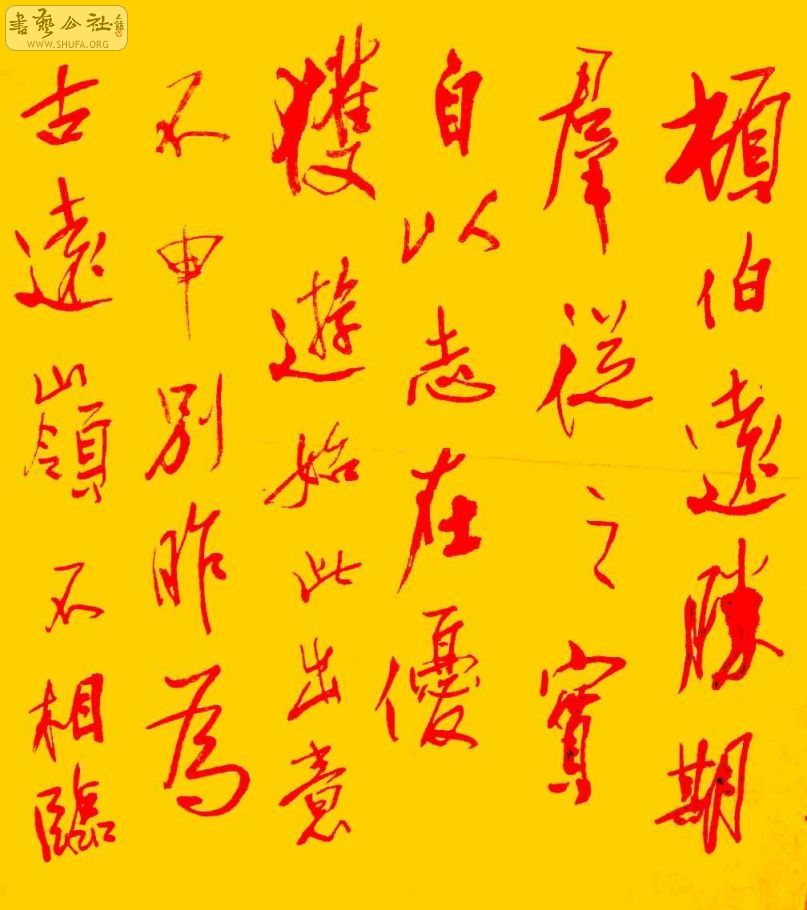 頓伯遠勝期
羣從之寶
自以志在優
獲遊始此出意
不申別昨為
古遠嶺不相臨
書藝公社
WWW.SHUFA.ORG